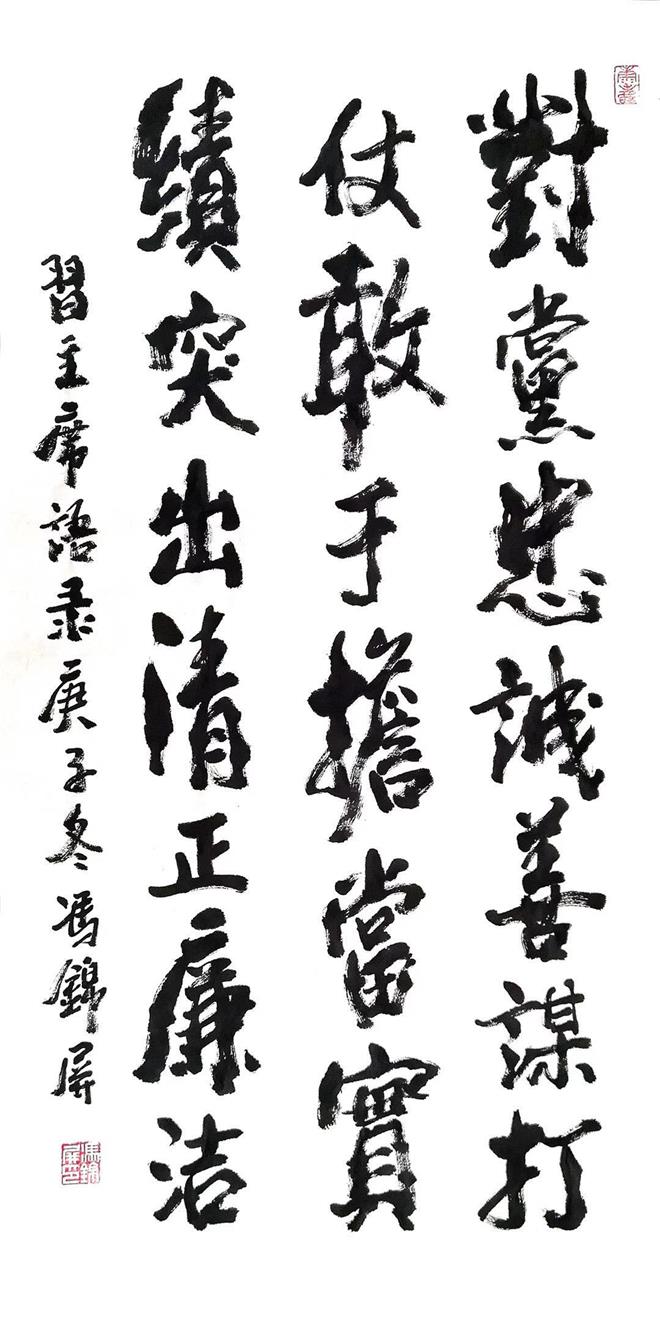 對黨忠誠善謀打
仗敢于擔當實
績突出清正廉洁
習主席語录庚子冬馮錦屏